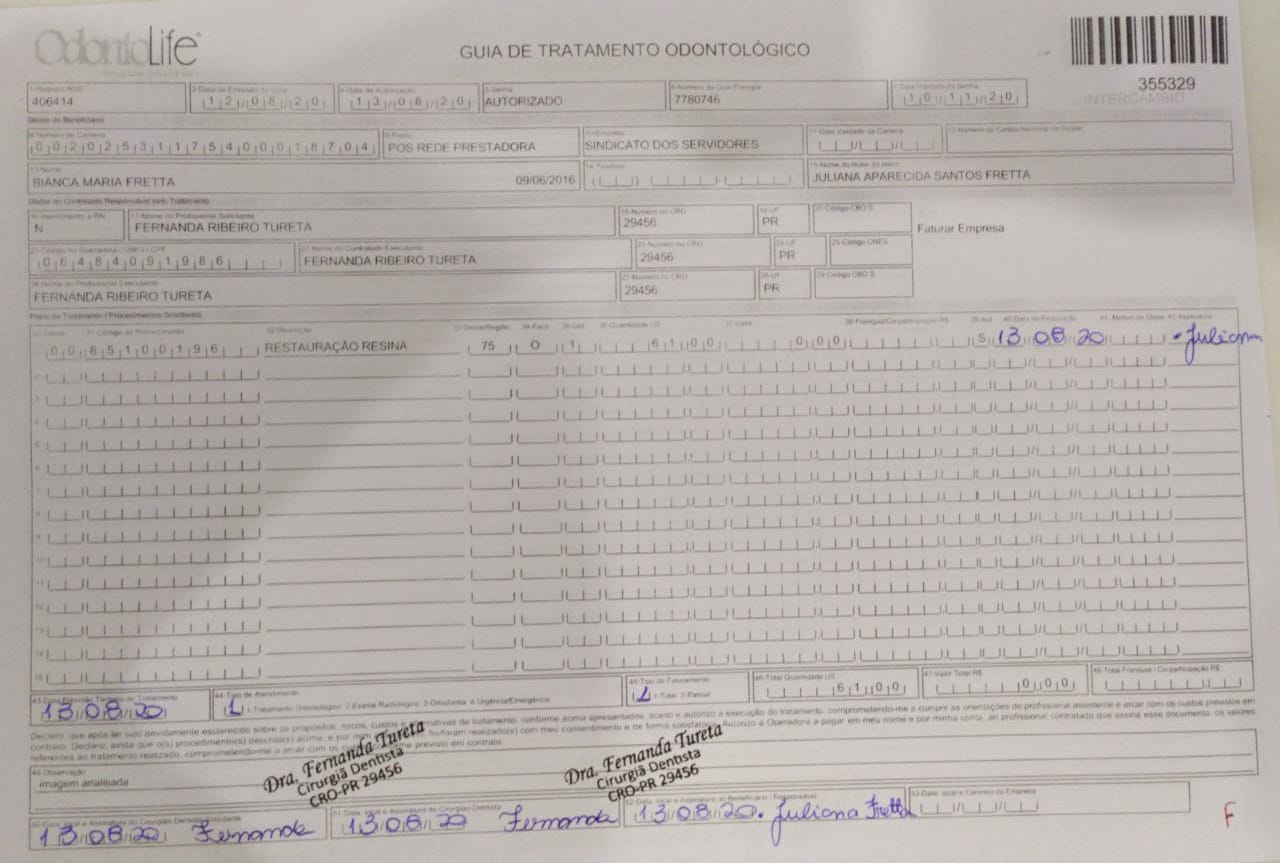 OdontoLife
GUIA DE TRATAMENTO ODONTOLÓGICO
355329
INTERCÂMBIO
1-Registro ANS
406414
12/08/20
13/08/20
5-Senha
AUTORIZADO
7780746
10/11/20
Dados do Beneficiário
8-Número da Carteira
00202531175400018704
9-Plano
POS REDE PRESTADORA
10-Empresa
SINDICATO DOS SERVIDORES
11-Data Validade da Carteira
12-Número do Cartão Nacional de Saúde
13-Nome
BIANCA MARIA FRETTA 09/06/2016
14-Telefone
JULIANA APARECIDA SANTOS FRETTA
Dados do Contratado Responsável pelo Tratamento
16-Atendimento a RN
N
17-Nome do Profissional Solicitante
FERNANDA RIBEIRO TURETA
18-Número no CRO
29456
19-UF
PR
20-Código CBO S
Faturar Empresa
21-Código na Operadora / CNPJ / CPF
06484091986
22-Nome do Contratado Executante
FERNANDA RIBEIRO TURETA
23-Número no CRO
29456
24-UF
PR
25-Código CNES
26-Nome do Profissional Executante
FERNANDA RIBEIRO TURETA
27-Número no CRO
29456
28-UF
PR
29-Código CBO S
Plano de Tratamento / Procedimentos Solicitados
00 85100196 RESTAURAÇÃO RESINA 75 O 1 6100 000 S 13 08 20 Juliana
43-Data Previsão Término do Tratamento
13 08 20
44-Tipo de Atendimento
1 1-Tratamento Odontológico 2-Exame Radiológico 3-Ortodontia 4-Urgência/Emergência
45-Tipo de Faturamento
1 1-Total 2-Parcial
46-Total Quantidade US
6100
47-Valor Total R$
000
48-Total Franquia / Co-participação R$
Declaro, que após ter sido devidamente esclarecido sobre os propósitos, riscos, custos e alternativas de tratamento, conforme acima apresentados, aceito e autorizo a execução do tratamento, comprometendo-me a cumprir as orientações do profissional assistente e arcar com os custos previstos em
contrato. Declaro, ainda que o(s) procedimento(s) descrito(s) acima, e por mim foi/foram realizado(s) com meu consentimento e de forma satisfatória. Autorizo a Operadora a pagar em meu nome e por minha conta, ao profissional contratado que assina esse documento, os valores
referentes ao tratamento realizado, comprometendo-me a arcar com os custos previsto em contrato.
49-Observação
imagem analisada
Dra. Fernanda Tureta
Cirurgiã Dentista
CRO-PR 29456
Dra. Fernanda Tureta
Cirurgiã Dentista
CRO-PR 29456
50-Data, local e Assinatura do Cirurgião Dentista Solicitante
13 08 20 Fernanda
51-Data, local e Assinatura do Cirurgião Dentista
13 08 20 Fernanda
52-Data, local e Assinatura do Beneficiário / Responsável
13 08 20. Juliana Fretta
53-Data, local e Carimbo da Empresa
F